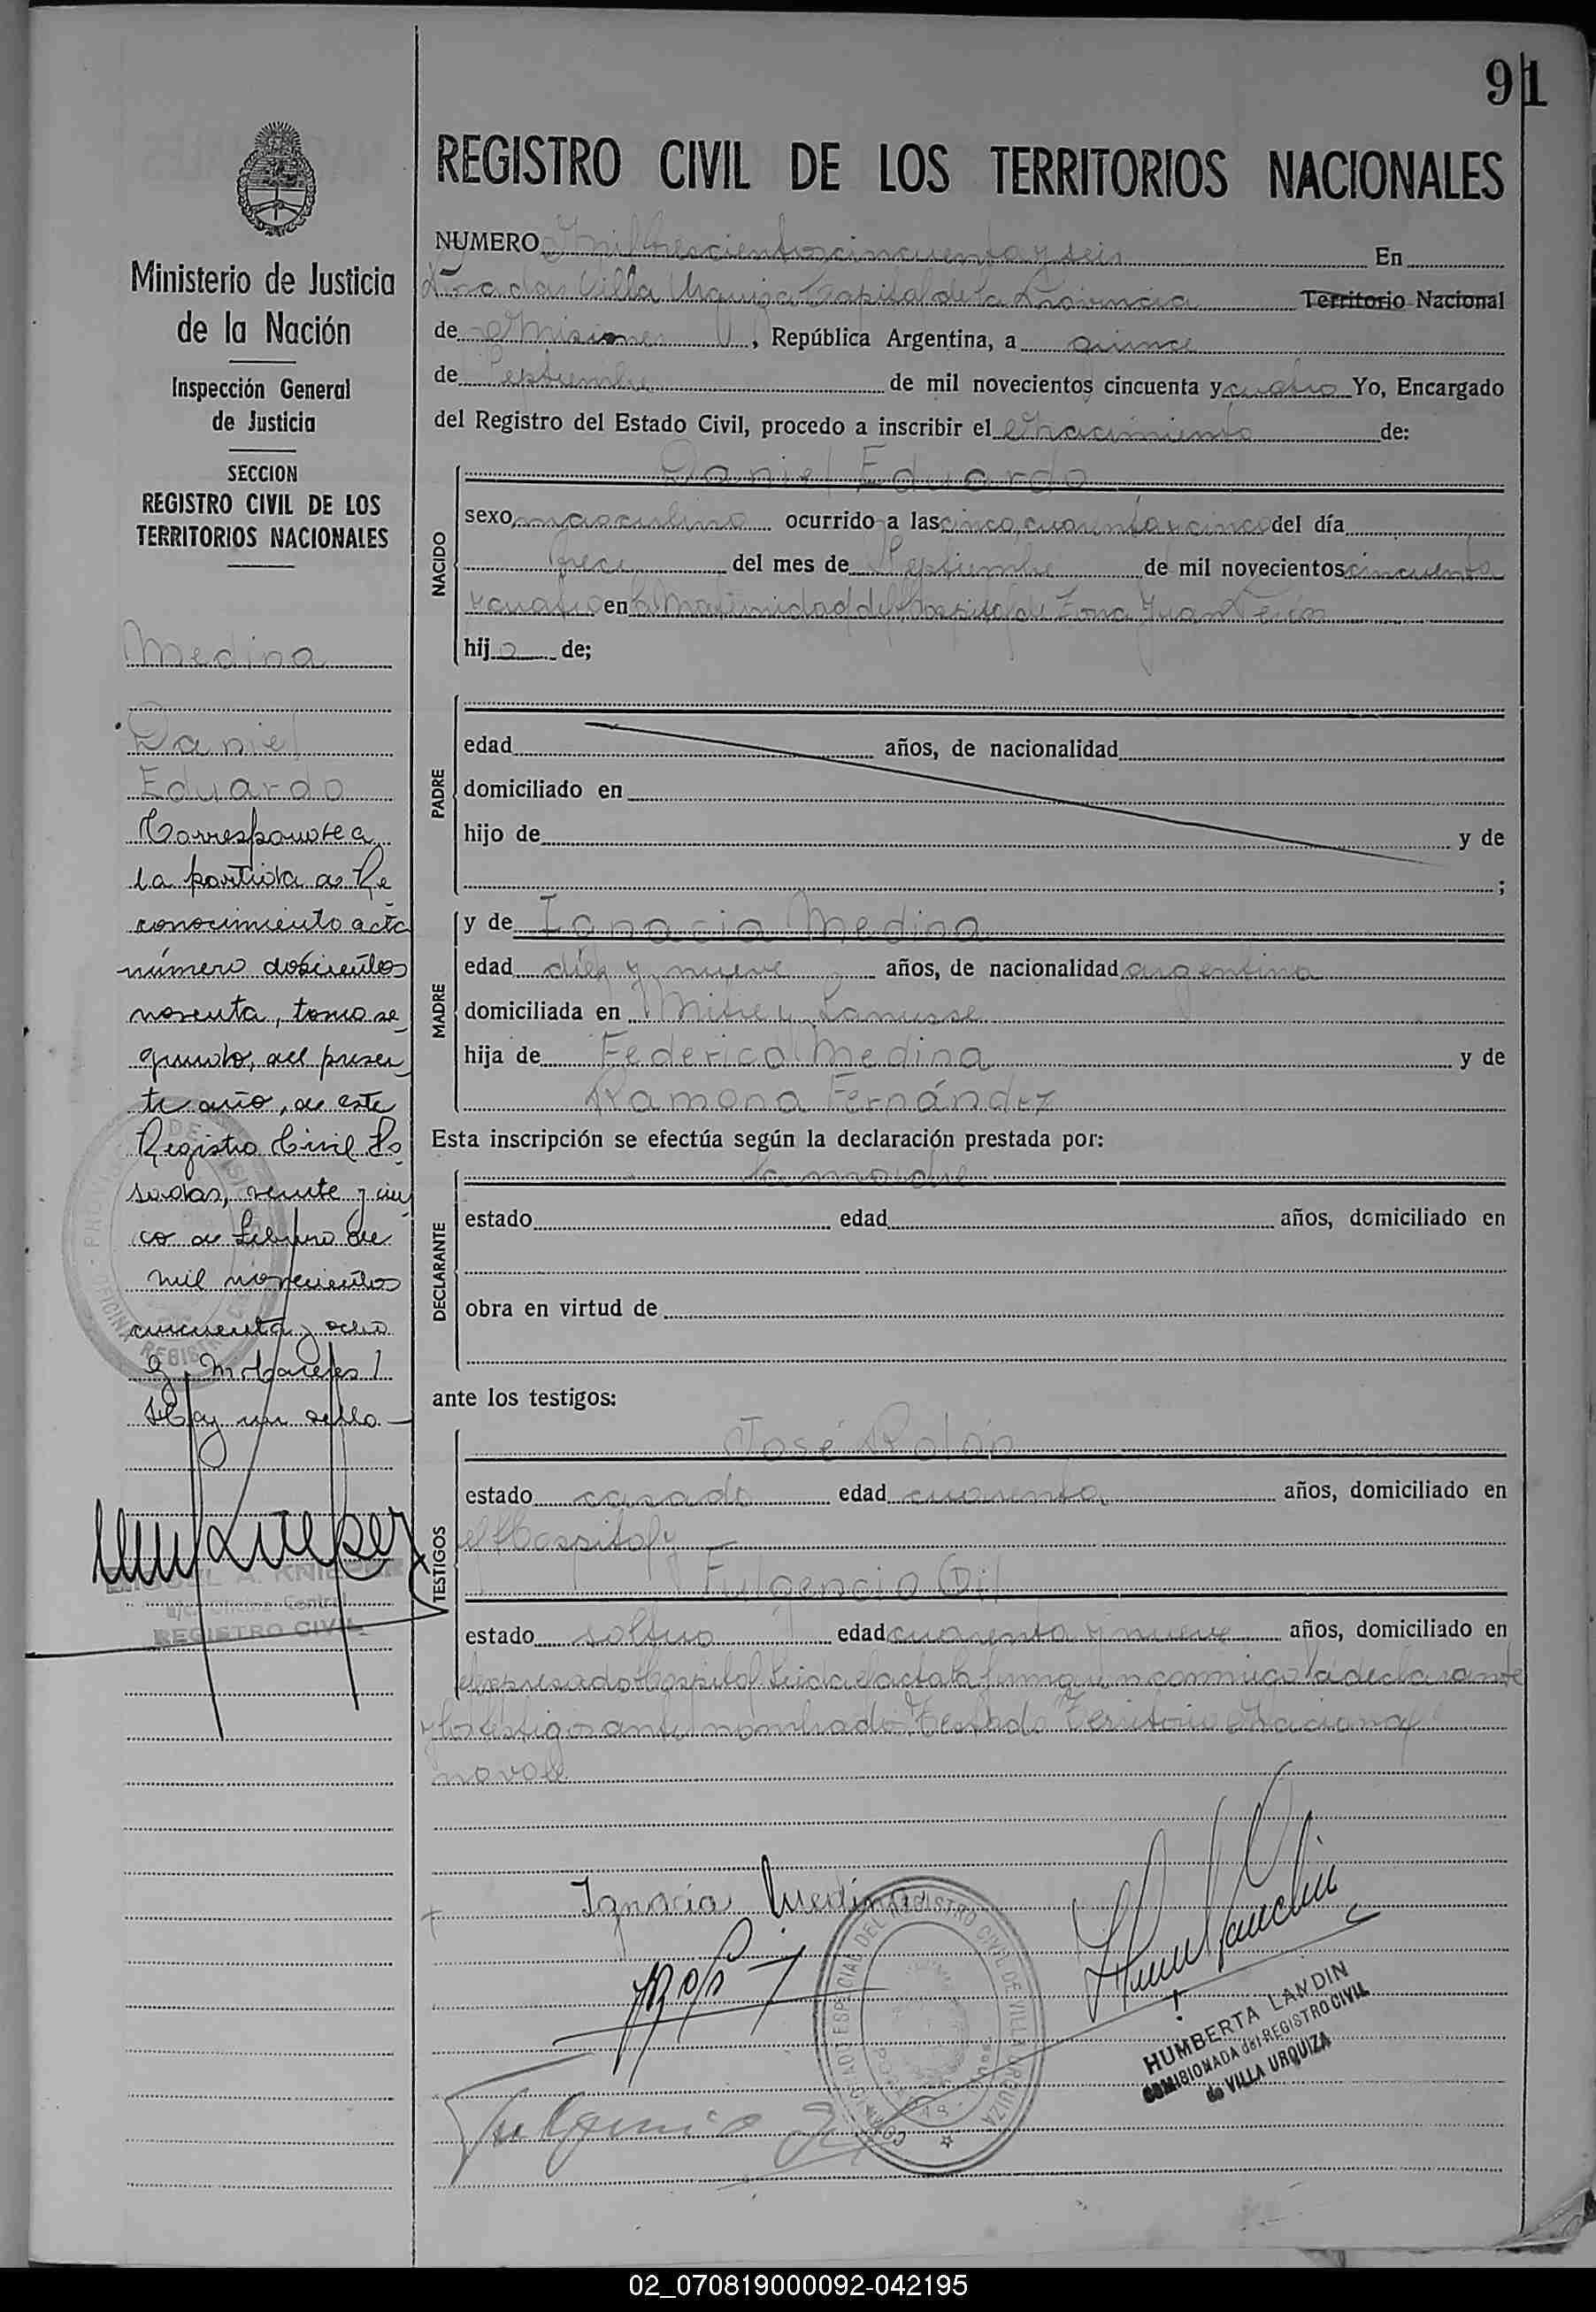 91
REGISTRO CIVIL DE LOS TERRITORIOS NACIONALES
Ministerio de Justicia
de la Nación
Inspección General
de Justicia
SECCION
REGISTRO CIVIL DE LOS
TERRITORIOS NACIONALES
Medina
Daniel
Eduardo
Corresponde a
la partida de Re
conocimiento acta
número doscientos
noventa, tomo se
gundo, del presen
te año, de este
Registro Civil Po
sadas, veinte y cin
co de Febrero de
mil novecientos
cincuenta y ocho
Hay un sello
MIGUEL A. KNIE
Oficina Central
REGISTRO CIVIL
NUMERO Mil trescientos cincuenta y seis En
Posadas Villa Urquiza Capital de la Provincia Territorio Nacional
de Misiones, República Argentina, a quince
de Septiembre de mil novecientos cincuenta y cuatro Yo, Encargado
del Registro del Estado Civil, procedo a inscribir el Nacimiento de:
NACIDO
Daniel Eduardo
sexo masculino ocurrido a las cinco, cuarenta y cinco del día
trece del mes de Septiembre de mil novecientos cincuenta
y cuatro en la Maternidad del Hospital de Zona Juan Perón
hijo de;
PADRE
edad años, de nacionalidad
domiciliado en
hijo de y de
;
MADRE
y de Ignacia Medina
edad diez y nueve años, de nacionalidad argentina
domiciliada en Mitre y Lanusse
hija de Federico Medina y de
Ramona Fernández
Esta inscripción se efectúa según la declaración prestada por:
DECLARANTE
la madre
estado edad años, domiciliado en
obra en virtud de
ante los testigos:
TESTIGOS
José Rolón
estado casado edad cuarenta años, domiciliado en
el Hospital y
Fulgencio Gil
estado soltero edad cuarenta y nueve años, domiciliado en
el expresado Hospital. Leida el acta la firmaron conmigo la declarante
y los testigos antes nombrados Testado Territorio Nacional
no vale
Ignacia Medina
COMISIONADO ESPECIAL DEL REGISTRO CIVIL DE VILLA URQUIZA
HUMBERTA LANDIN
COMISIONADA del REGISTRO CIVIL
de VILLA URQUIZA
Fulgencio Gil
02_070819000092-042195